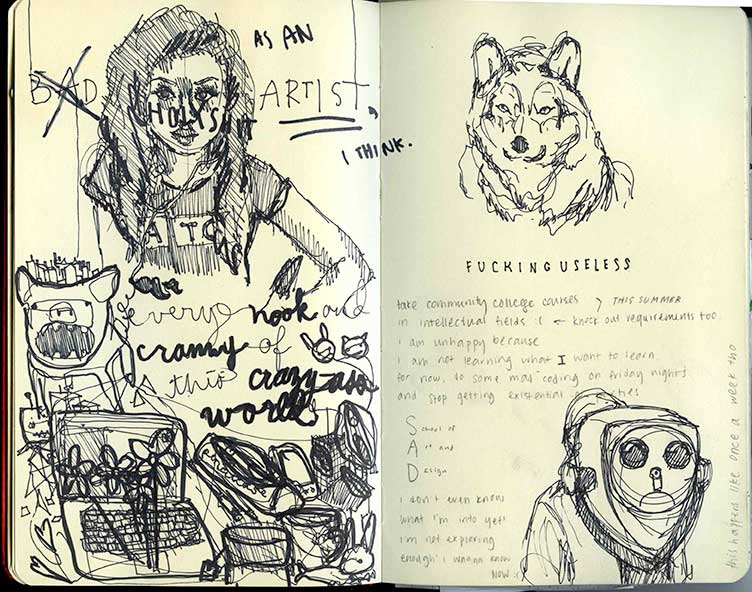 AS AN
BAD
ARTIST,
HOLY SHIT
I THINK.
every nook and
cranny of
this crazy-ass
world
FUCKING USELESS
take community college courses > THIS SUMMER
in intellectual fields :( ← knock out requirements too
I am unhappy because
I am not learning what I want to learn.
for now, do some mad coding on friday nights
and stop getting existential
School of
Art and
Design
I don't even know
what I'm into yet!
I'm not exploring
enough! I wanna know
NOW :(
this happens like once a week tho